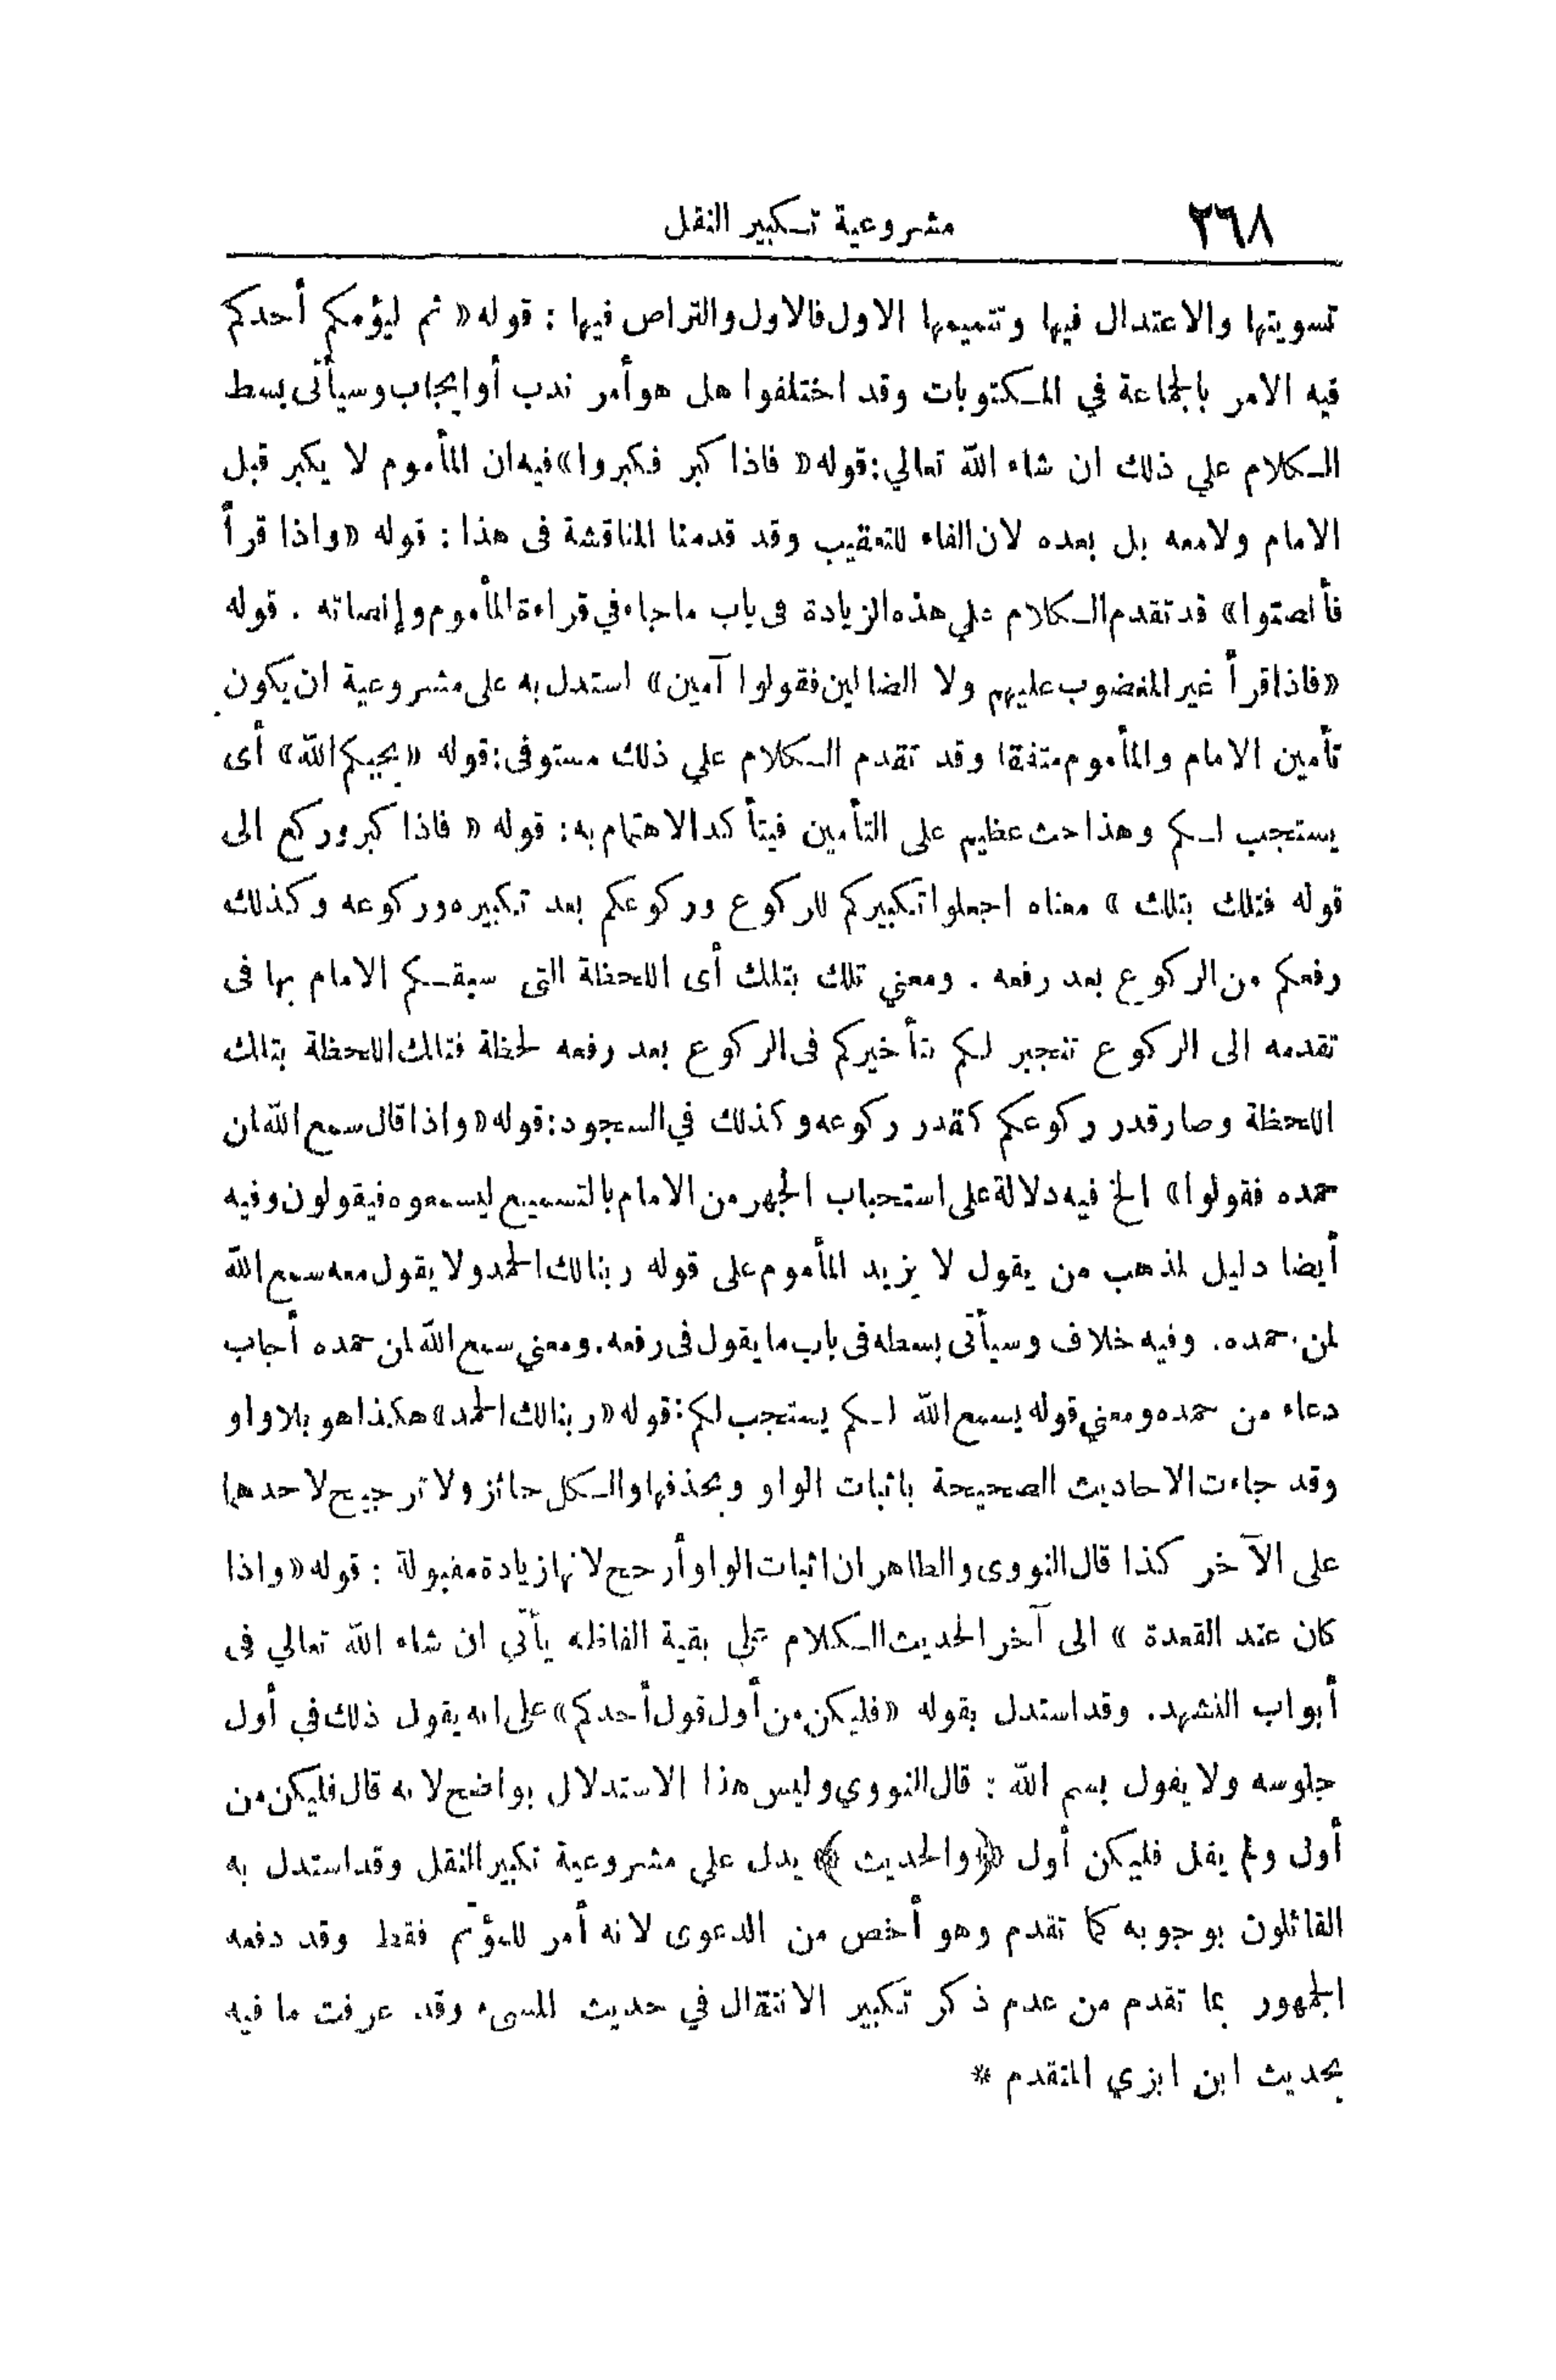 ٢٦٨ مشروعية تكبير النقل
تسويتها والاعتدال فيها وتتميمها الاول فالاول والتراص فيها : قوله « ثم ليؤمكم أحدكم
فيه الامر بالجماعة في المكتوبات وقد اختلفوا هل هو أمر ندب أو ايجاب وسيأتى بسط
الكلام علي ذلك ان شاء الله تعالي : قوله « فاذا كبر فكبروا » فيه ان المأموم لا يكبر قبل
الامام ولا معه بل بعده لان الفاء للتعقيب وقد قدمنا المناقشة فى هذا : قوله « واذا قرأ
فأنصتوا » قد تقدم الكلام علي هذه الزيادة فى باب ما جاء في قراءة المأموم وإنصاته . قوله
« فاذا قرأ غير المغضوب عليهم ولا الضالين فقولوا آمين » استدل به على مشروعية ان يكون
تأمين الامام والمأموم متفقا وقد تقدم الكلام علي ذلك مستوفى : قوله « يجبكم الله » أى
يستجب لكم وهذا حث عظيم على التأمين فيتأكد الاهتمام به : قوله « فاذا كبر وركع الى
قوله فتلك بتلك » معناه اجعلوا تكبيركم للركوع وركوعكم بعد تكبيره وركوعه وكذلك
رفعكم من الركوع بعد رفعه . ومعني تلك بتلك أى اللحظة التى سبقكم الامام بها فى
تقدمه الى الركوع تنجبر لكم بتأخيركم فى الركوع بعد رفعه لحظة فتلك اللحظة بتلك
اللحظة وصار قدر ركوعكم كقدر ركوعه وكذلك في السجود : قوله « واذا قال سمع الله لمن
حمده فقولوا » الخ فيه دلالة على استحباب الجهر من الامام بالتسميع ليسمعوه فيقولون وفيه
أيضا دليل لمذهب من يقول لا يزيد المأموم على قوله ربنا لك الحمد ولا يقول معه سمع الله
لمن حمده . وفيه خلاف وسيأتى بسطه فى باب ما يقول فى رفعه . ومعني سمع الله لمن حمده أجاب
دعاء من حمده ومعني قوله يسمع الله لكم يستجب لكم : قوله « ربنا لك الحمد » هكذا هو بلا واو
وقد جاءت الاحاديث الصحيحة باثبات الواو وبحذفها والكل جائز ولا ترجيح لاحدهما
على الآخر كذا قال النووى والظاهر ان اثبات الواو أرجح لانها زيادة مقبولة : قوله « واذا
كان عند القعدة » الى آخر الحديث الكلام علي بقية الفاظه يأتي ان شاء الله تعالي فى
أبواب التشهد . وقد استدل بقوله « فليكن من أول قول أحدكم » على انه يقول ذلك في أول
جلوسه ولا يقول بسم الله : قال النووي وليس هذا الاستدلال بواضح لانه قال فليكن من
أول ولم يقل فليكن أول ﴿ والحديث ﴾ يدل علي مشروعية تكبير النقل وقد استدل به
القائلون بوجوبه كما تقدم وهو أخص من الدعوى لانه أمر للمؤتم فقط وقد دفعه
الجمهور بما تقدم من عدم ذكر تكبير الانتقال في حديث المسىء وقد عرفت ما فيه
بحديث ابن ابزي المتقدم *